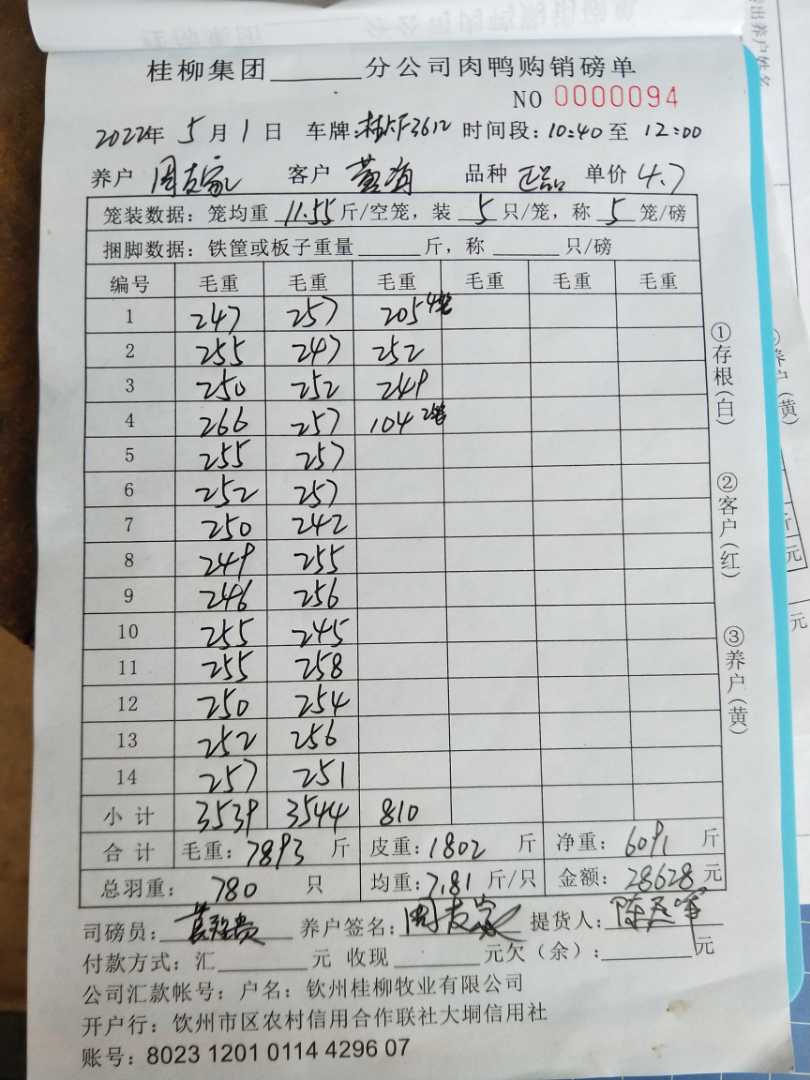 桂柳集团______分公司肉鸭购销磅单
NO 0000094
2022年 5月1日 车牌:桂F3612 时间段:10:40至 12:00
养户 周友家 客户 黄海 品种 正品 单价 4.7
笼装数据: 笼均重 11.55 斤/空笼, 装 5 只/笼, 称 5 笼/磅
捆脚数据: 铁筐或板子重量______斤, 称______只/磅
编号 毛重 毛重 毛重 毛重 毛重 毛重
1 247 257 205 4笼
2 255 247 252
3 250 252 249
4 266 257 104 2笼
5 255 257
6 252 257
7 250 242
8 249 255
9 246 256
10 255 245
11 255 258
12 250 254
13 252 256
14 257 251
小计 3539 3544 810
合计 毛重: 7893 斤 皮重: 1802 斤 净重: 6091 斤
总羽重: 780 只 均重: 7.81 斤/只 金额: 28628 元
司磅员: 养户签名: 周友家 提货人:
付款方式: 汇______元 收现______元欠(余):______元
公司汇款帐号: 户名: 钦州桂柳牧业有限公司
开户行: 饮州市区农村信用合作联社大垌信用社
账号: 8023 1201 0114 4296 07
①存根(白)
②客户(红)
③养户(黄)